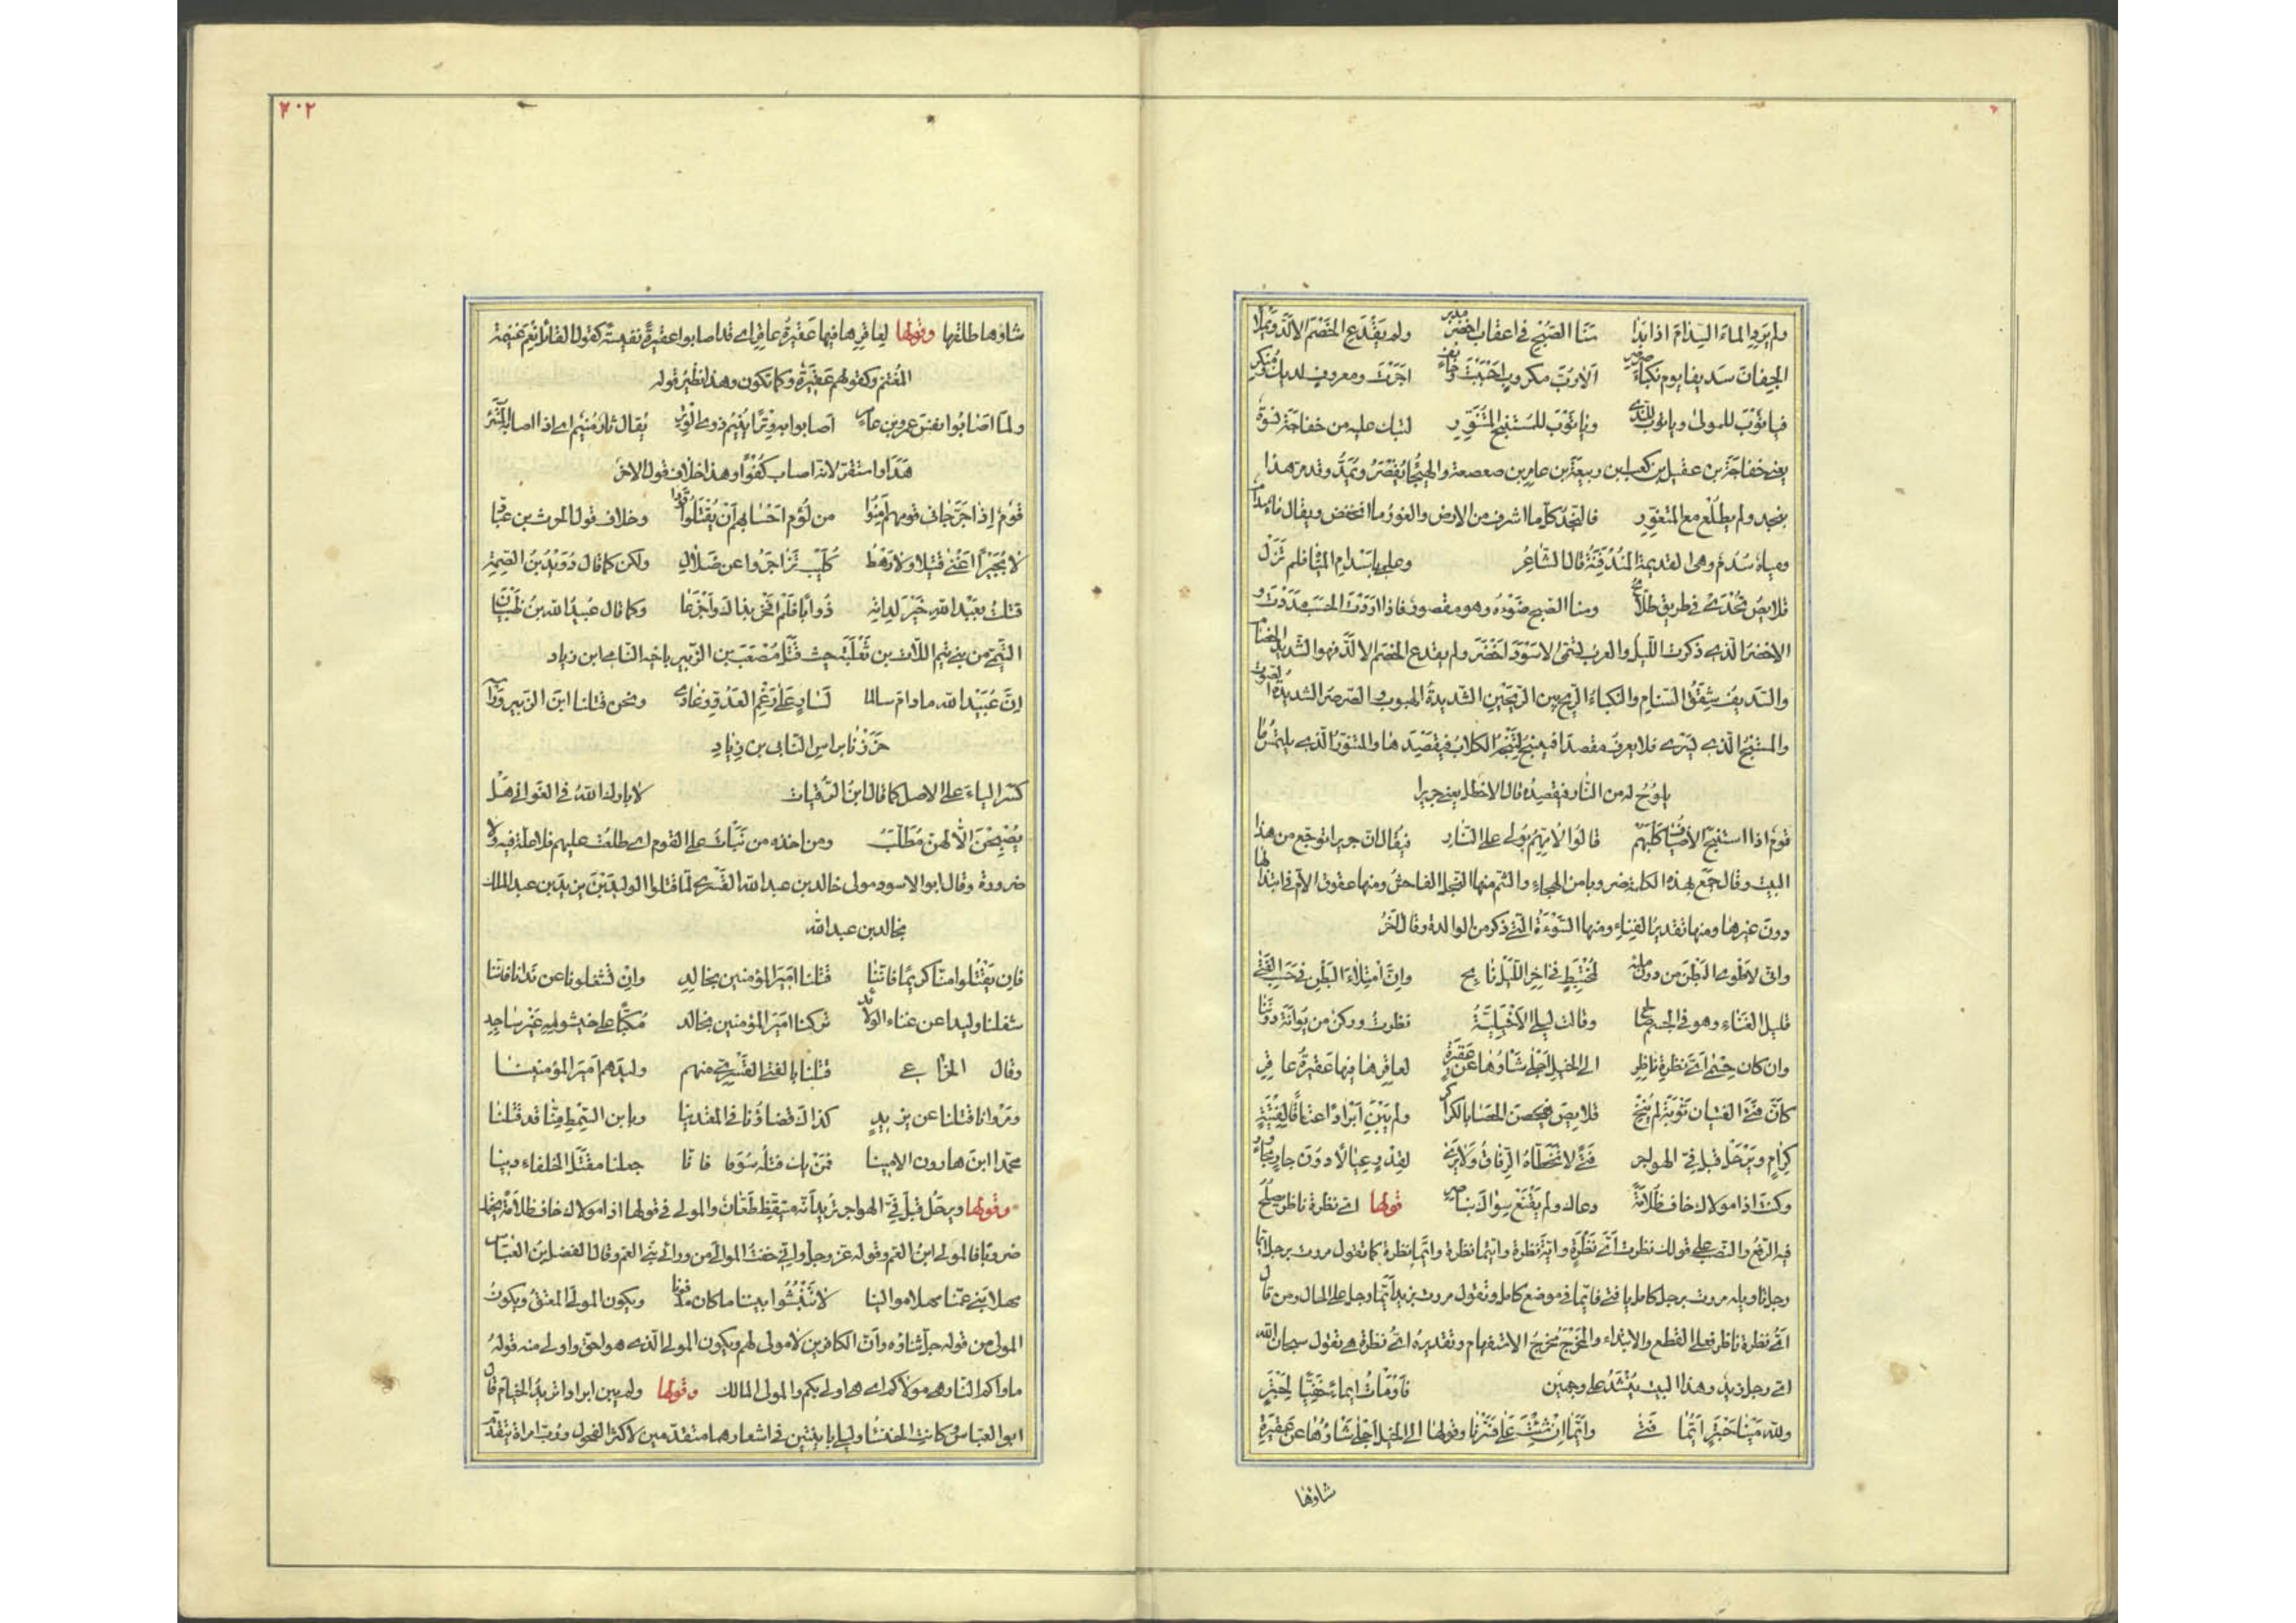 ولم يرد الماء السدام اذا بدا سنا الصبح فى اعقاب اخضر مدبر ولم يقدع الخصم الالد ويملا
الجفان سديفا يوم نكباء صرصر الا رب مكروب اجبت وخائف اجرت ومعروف لديك ومنكر
فيا توب للمولى ويا توب للندى ويا توب للمستنبح المتنور لتبك عليه من خفاجة نسوة
يعنى خفاجة بن عقيل بن كعب بن ربيعة بن عامر بن صعصعة والهيجا يقصر ويمد وقد مر هذا
بنجد ولم يطلع مع المتغور فالنجد كل ما اشرف من الارض والغور ما انخفض ويقال ماء سدام
ومياه سدم وهى القديمة المندفنة قال الشاعر وعلمى باسدام المياه فلم تزل
قلايص تحدى فى طريق طلائح وسنا الصبح ضوءه وهو مقصور فاذا اردت الحسب مددت و
الاخضر الذى ذكرت الليل والعرب تسمى الاسود اخضر ولم يقدع الخصم الالد فهو الشديد الخصام
والسديف شقق السنام والنكباء الريح بين الريحين الشديدة الهبوب والصرصر الشديدة الصوت
والمستنبح الذى يسرى فلا يعرف مقصدا فينبح لتجيبه الكلاب فيقصدها والمتنور الذى يلتمس ما
يلوح له من النار فيقصده قال الاخطل يعنى جريرا
قوم اذا استنبح الاضياف كلبهم قالوا لامهم بولى على النار فيقال ان جريرا توجع من هذا
البيت وقال جمع بهذه الكلمة ضروبا من الهجاء والشتم منها البخل الفاحش ومنها عقوق الام فى ابتذالها
دون غيرها ومنها تقذير الفناء ومنها السوءة التى ذكر من الوالدة وقال آخر
وانى لاطوى البطن من دون ملئه لمختبط فى اخر الليل نابح وان امتلاء البطن فى حسب الفتى
قليل الغناء وهو فى الجسم صالح وقالت ليلى الاخيلية نظرت وركن من بوانة دوننا
وان كان جسمى اى نظرة ناظر الى الخيل اجلى شاوها عن عقيرة لعاقرها فيها عقيرة عاقر
كأن فتى الفتيان توبة لم ينخ قلايص يفحصن الحصا بالكراكر ولم يبن ابرادا عتاقا لفتية
كرام ويرحل قبل فى الهواجر فتى لا تخطاه الرفاق ولا يرى لقدر عيالا دون جار مجاور
وكنت اذا مولاك خاف ظلامة دعاك ولم يقنع سواك بناصر قولها اى نظرة ناظر يصلح
فيه الرفع والنصب على قولك نظرت اى نظرة واية نظرة وايتما نظرة وايما نظرة كما تقول مررت برجل ايما
رجل تاويله مررت برجل كامل يا فتى فايما فى موضع كامل وتقول مررت بزيد ايما رجل على الحال ومن قال
اى نظرة ناظر فعلى القطع والابتداء والمخرج مخرج الاستفهام وتقديره اى نظرة هى تقول سبحان الله
اى رجل زيد وهذا البيت ينشد على وجهين فاومأت ايماء خفيا لحبتر
ولله عينا حبتر ايما فتى وايما ان شئت على فسرنا وقولها الى الخيل اجلى شاوها عن عقيرة
شاوها
٢٠٢
شاوها طلقها وقولها لعاقرها فيها عقيرة عاقر اى قد اصابوا عقيرة نفيسة كقول القائل نعم غنيمة
المغتنم وكقولهم عقيرة وكما تكون وهذا نظير قوله
ولما اصابوا نفس عمرو بن عامر اصابوا به وترا ينيم ذوى الوتر يقال ثار منيم اى اذا اصابه المتثر
هدا واستقر لانه اصاب كفوا وهذا خلاف قول الاخر
قوم اذا جر جانى قومهم امنوا من لؤم احسابهم ان يقتلوا قودا وخلاف قول الحرث بن عباد
لا بجير اغنى قتيلا ولا رهط كليب تزاجروا عن ضلال ولكن كما قال دريد بن الصمة
قتلت بعبد الله خير لداته ذوابا فلم افخر بذاك واجزعا وكما قال عبيد الله بن ظبيان
التيمى من بنى تيم اللات بن ثعلبة حيث قتل مصعب بن الزبير باخيه النابى ابن زياد
ان عبيد الله ما دام سالما لسار على رغم العدو وغادى ونحن قتلنا ابن الزبير وراسه
حززنا براس النابى بن زياد
كسر الياء على الاصل كما قال ابن الرقيات لا بارك الله فى الغوانى هل
يصبحن الا لهن مطلب ومن اخذه من نبأت على القوم اى طلعت عليهم فلا علة فيه ولا
ضرورة وقال ابو الاسود مولى خالد بن عبد الله القسرى لما قتلوا الوليد بن يزيد بن عبد الملك
بخالد بن عبد الله
فان يقتلوا منا كريما فاننا قتلنا امير المؤمنين بخالد وان تشغلونا عن ندانا فاننا
شغلنا وليدا عن غناء الولائد تركنا امير المؤمنين بخالد مكبا على خيشومه غير ساجد
وقال الخزاعى قتلنا بالفتى القسرى منهم وليدهم امير المؤمنينا
ومروانا قتلنا عن يزيد كذاك قضاؤنا فى المعتدينا وبابن السمط منا قد قتلنا
محمدا ابن هارون الامينا فمن يك قتله سوقا فانا جعلنا مقتل الخلفاء دينا
وقولها ويرحل قبل فى الهواجر تريد انه متيقظ ظعان والمولى فى قولها اذا مولاك خاف ظلامة يحتمل
ضروبا فالمولى ابن العم وقوله عز وجل وانى خفت الموالى من ورائى بنى العم وقال الفضل بن العباس
مهلا بنى عمنا مهلا موالينا لا تنبشوا بيننا ما كان مدفونا ويكون المولى المعتق ويكون
المولى من قوله جل ثناؤه وأن الكافرين لا مولى لهم ويكون المولى الذى هو احق واولى منه قوله
ماواكم النار هى مولاكم اى هى اولى بكم والمولى المالك وقولها ولم يبن ابرادا تريد الخيام قال
ابو العباس كانت الخنساء وليلى باينتين فى اشعارهما متقدمين لاكثر الفحول ورب امراة تتقدم